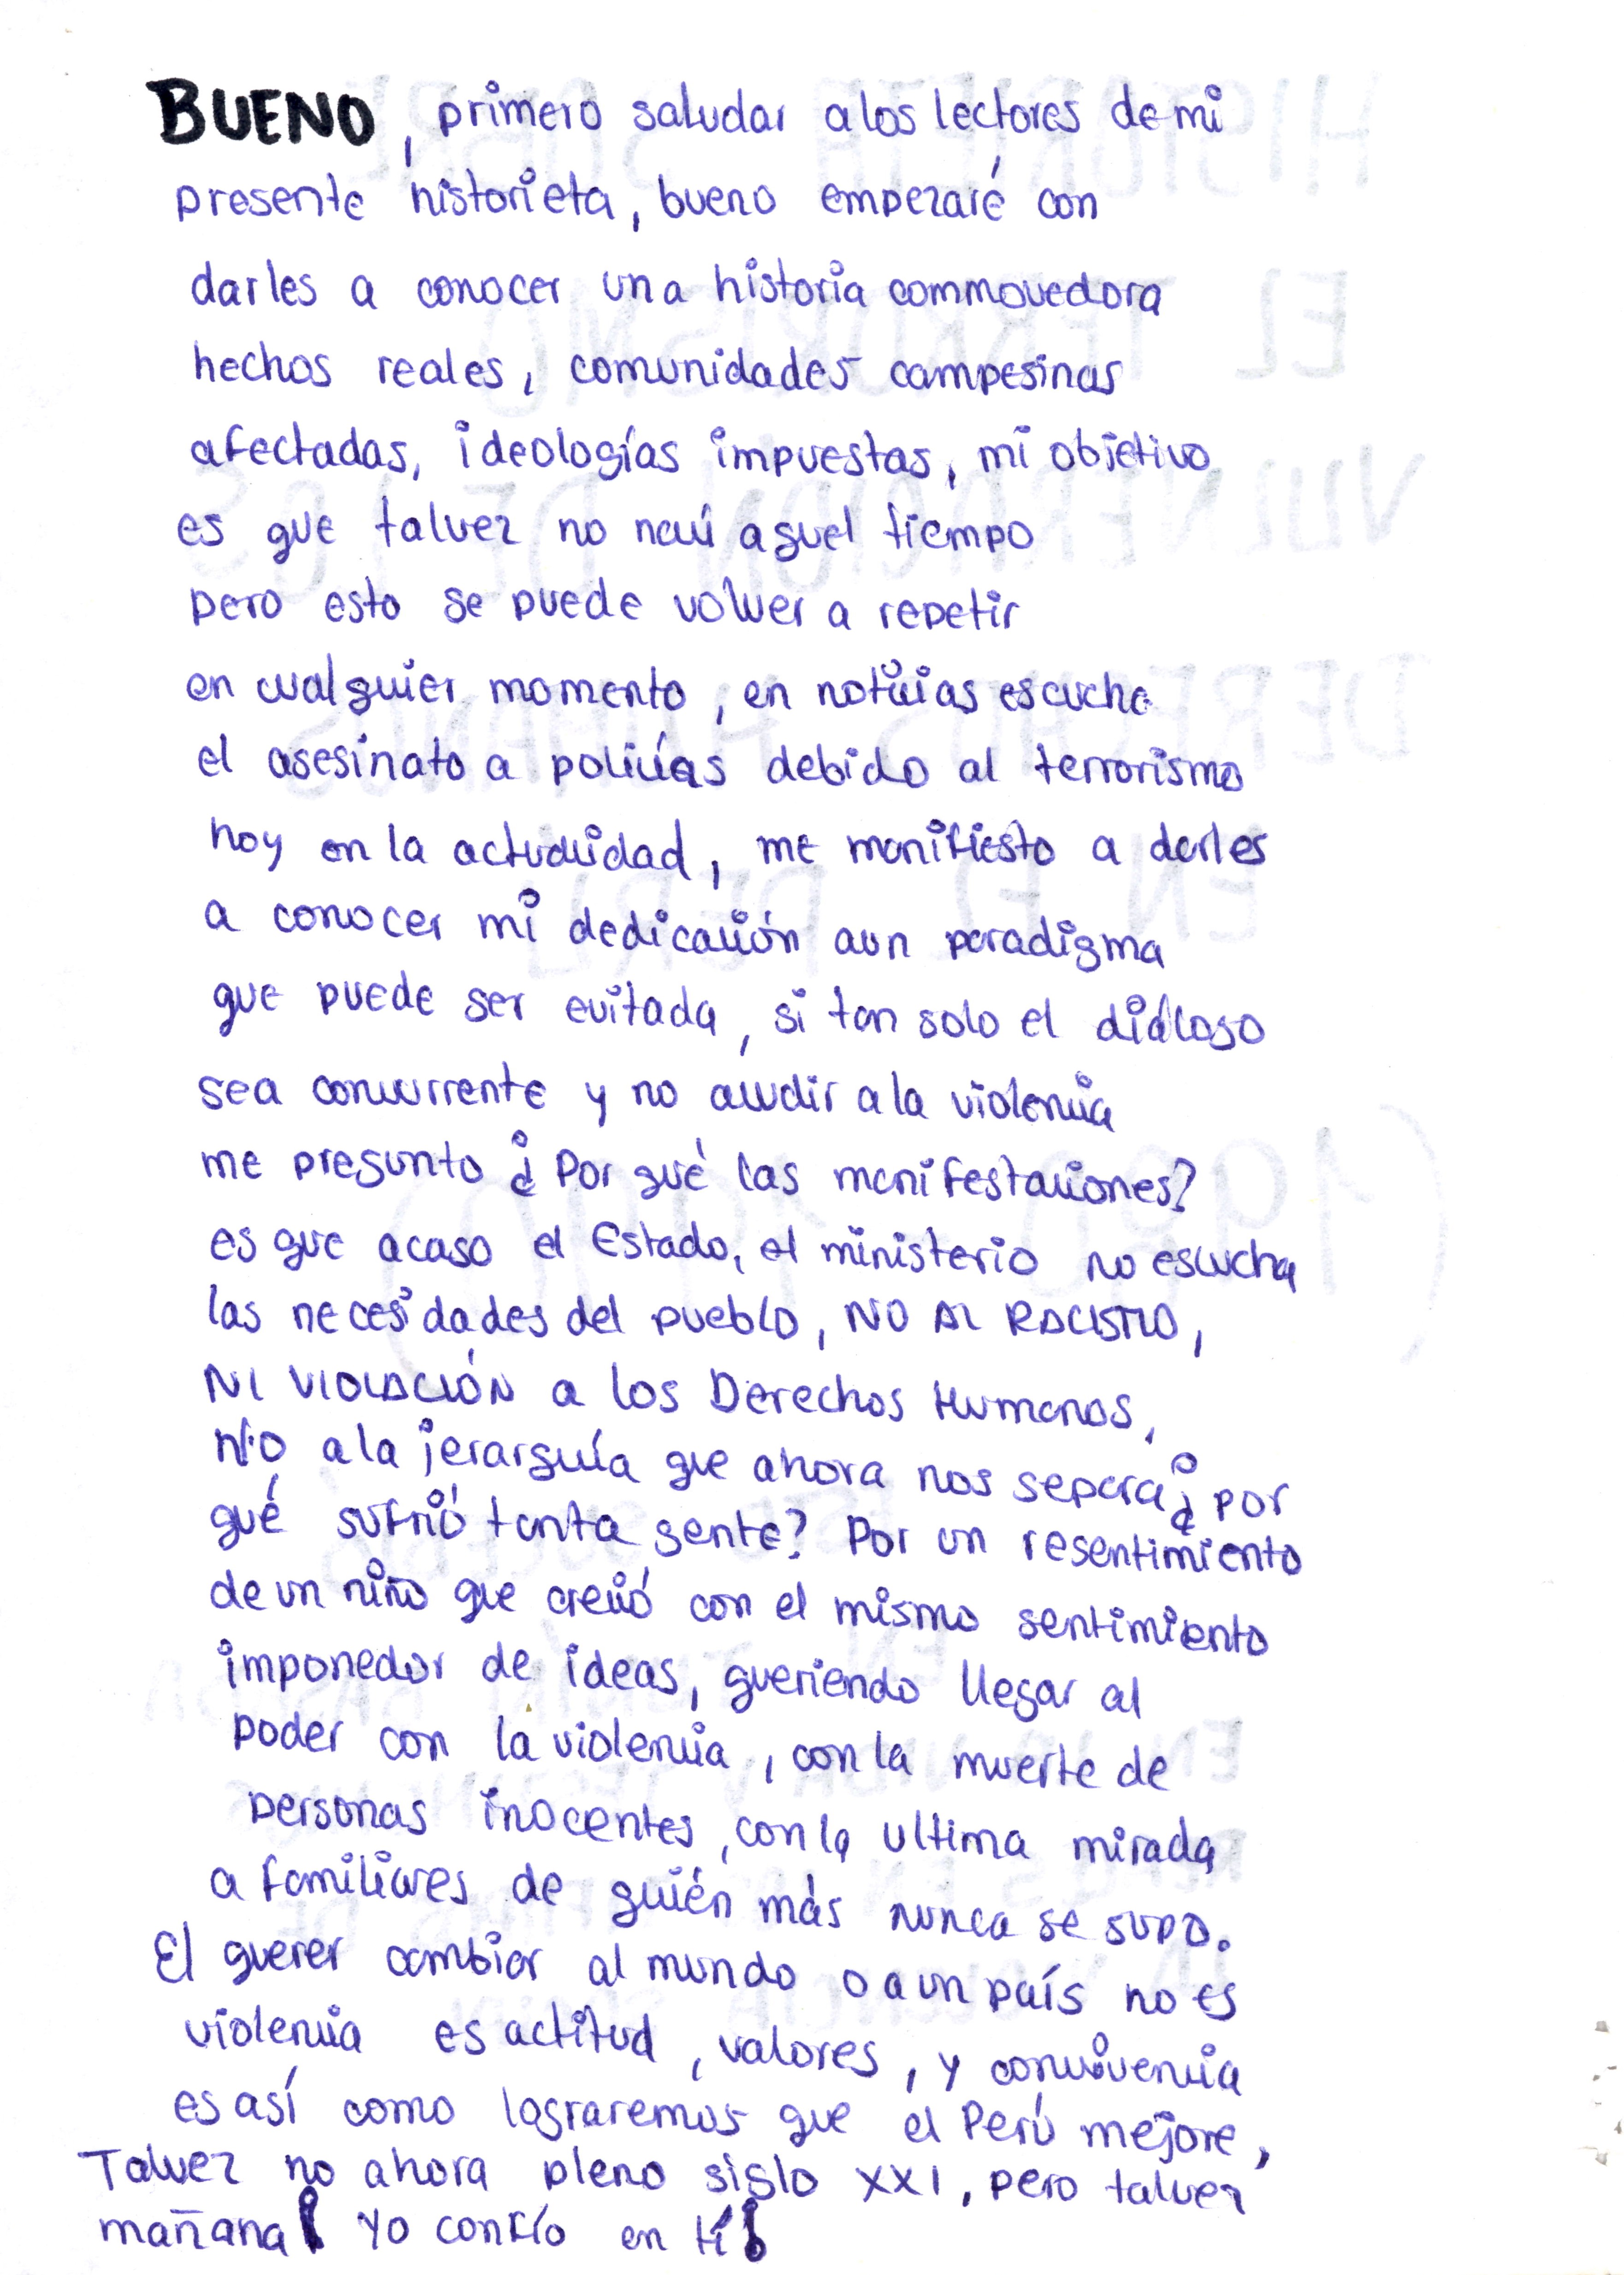 BUENO, primero saludar a los lectores de mi
presente historieta, bueno empezaré con
darles a conocer una historia commovedora
hechos reales, comunidades campesinas
afectadas, ideologías impuestas, mi objetivo
es que talvez no nací aquel tiempo
pero esto se puede volver a repetir
en cualquier momento, en noticias escuche
el asesinato a policías debido al terrorismo
hoy en la actualidad, me manifiesto a darles
a conocer mi dedicación aun paradigma
que puede ser evitada, si tan solo el diálogo
sea concurrente y no acudir a la violencia
me pregunto ¿Por qué las manifestaciones?
es que acaso el Estado, el ministerio no escucha
las necesidades del pueblo, NO AL RACISMO,
NI VIOLACIÓN a los Derechos Humanos,
NO a la jerarquía que ahora nos separa ¿por
qué sufrió tanta gente? Por un resentimiento
de un niño que creció con el mismo sentimiento
imponedor de ideas, queriendo llegar al
poder con la violencia, con la muerte de
personas inocentes, con la ultima mirada
a familiares de quién más nunca se supo.
El querer cambiar al mundo o a un país no es
violencia es actitud, valores, y convivencia
es así como lograremos que el Perú mejore,
Talvez no ahora pleno siglo XXI, pero talvez
mañana ¡Yo confío en tí!